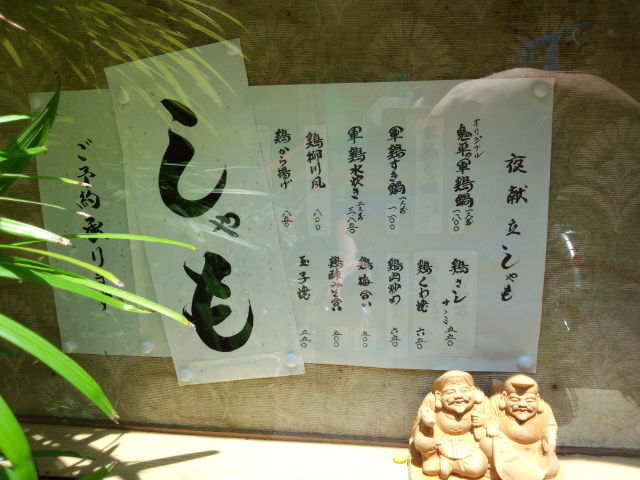 夜献立 しゃも
オリジナル
鬼平の軍鶏鍋 一人前 一八〇〇
軍鶏すき鍋 一人前 一八〇〇
軍鶏水炊き 二人前 三八五〇
鶏柳川風 八〇〇
鶏から揚げ 八五〇
鶏さし サンミ 五五〇
鶏くわ焼 六五〇
鶏肉炒め 六五〇
鶏梅合い 五〇〇
玉子焼 五五〇
しゃも
ご予約承ります